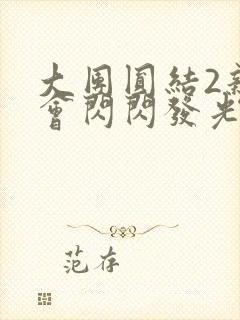 大團圓結2
會閃閃發光
范存